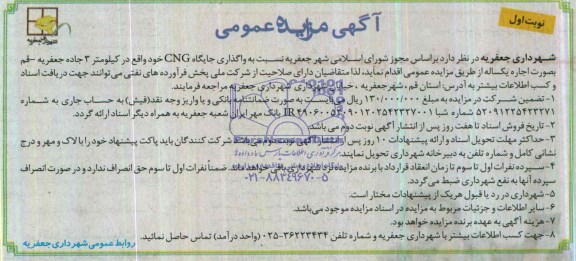 نوبت اول
آگهی مزایده عمومی
شهرداری جعفریه
شهرداری جعفریه در نظر دارد براساس مجوز شورای اسلامی شهر جعفریه نسبت به واگذاری جایگاه CNG خود واقع در کیلومتر ۳ جاده جعفریه – قم
بصورت اجاره یکساله از طریق مزایده عمومی اقدام نماید، لذا متقاضیان دارای صلاحیت از شرکت ملی پخش فرآورده های نفتی می‌توانند جهت دریافت اسناد
و کسب اطلاعات بیشتر به آدرس: استان قم، شهر جعفریه - خیابان شهرداری شهرداری جعفریه مراجعه فرمایند.
۱- تضمین شرکت در مزایده به مبلغ ۱۳۰/۰۰۰/۰۰۰ ریال می‌بایست به صورت ضمانتنامه بانکی و یا واریز وجه نقد (فیش) به حساب جاری به شماره
بانک مهر ایران شعبه جعفریه به همراه دیگر اسناد ارائه گردد.
۲- تاریخ فروش اسناد تا هفت روز پس از انتشار آگهی نوبت دوم می باشد.
۳- حداکثر مهلت تحویل اسناد و ارائه پیشنهادات ۱۰ روز پس از انتشار آگهی نوبت دوم می باشد شرکت کنندگان باید پاکت پیشنهاد خود را با لاک و مهر و درج
نشانی کامل و شماره تلفن به دبیرخانه شهرداری تحویل نمایند.
۴- سپرده نفرات اول تا سوم تا زمان انعقاد قرارداد با برنده مزایده نزد شهرداری باقی خواهد ماند. ضمناً نفرات اول تا سوم حق انصراف ندارد و در صورت انصراف
سپرده آنها به نفع شهرداری ضبط می گردد.
۵- شهرداری در رد یا قبول هریک از پیشنهادات مختار است.
۶- سایر اطلاعات و جزئیات مربوط به مزایده در اسناد مزایده موجود می‌باشد.
۷- هزینه آگهی به عهده برنده مزایده خواهد بود.
۸- جهت کسب اطلاعات بیشتر با شهرداری جعفریه و شماره تلفن ۳۶۲۲۳۴۳۴-۰۲۵ (واحد درآمد) تماس حاصل نمائید.
روابط عمومی شهرداری جعفریه
۰۲۱-۸۸۳۴۹۶۷۰-۵